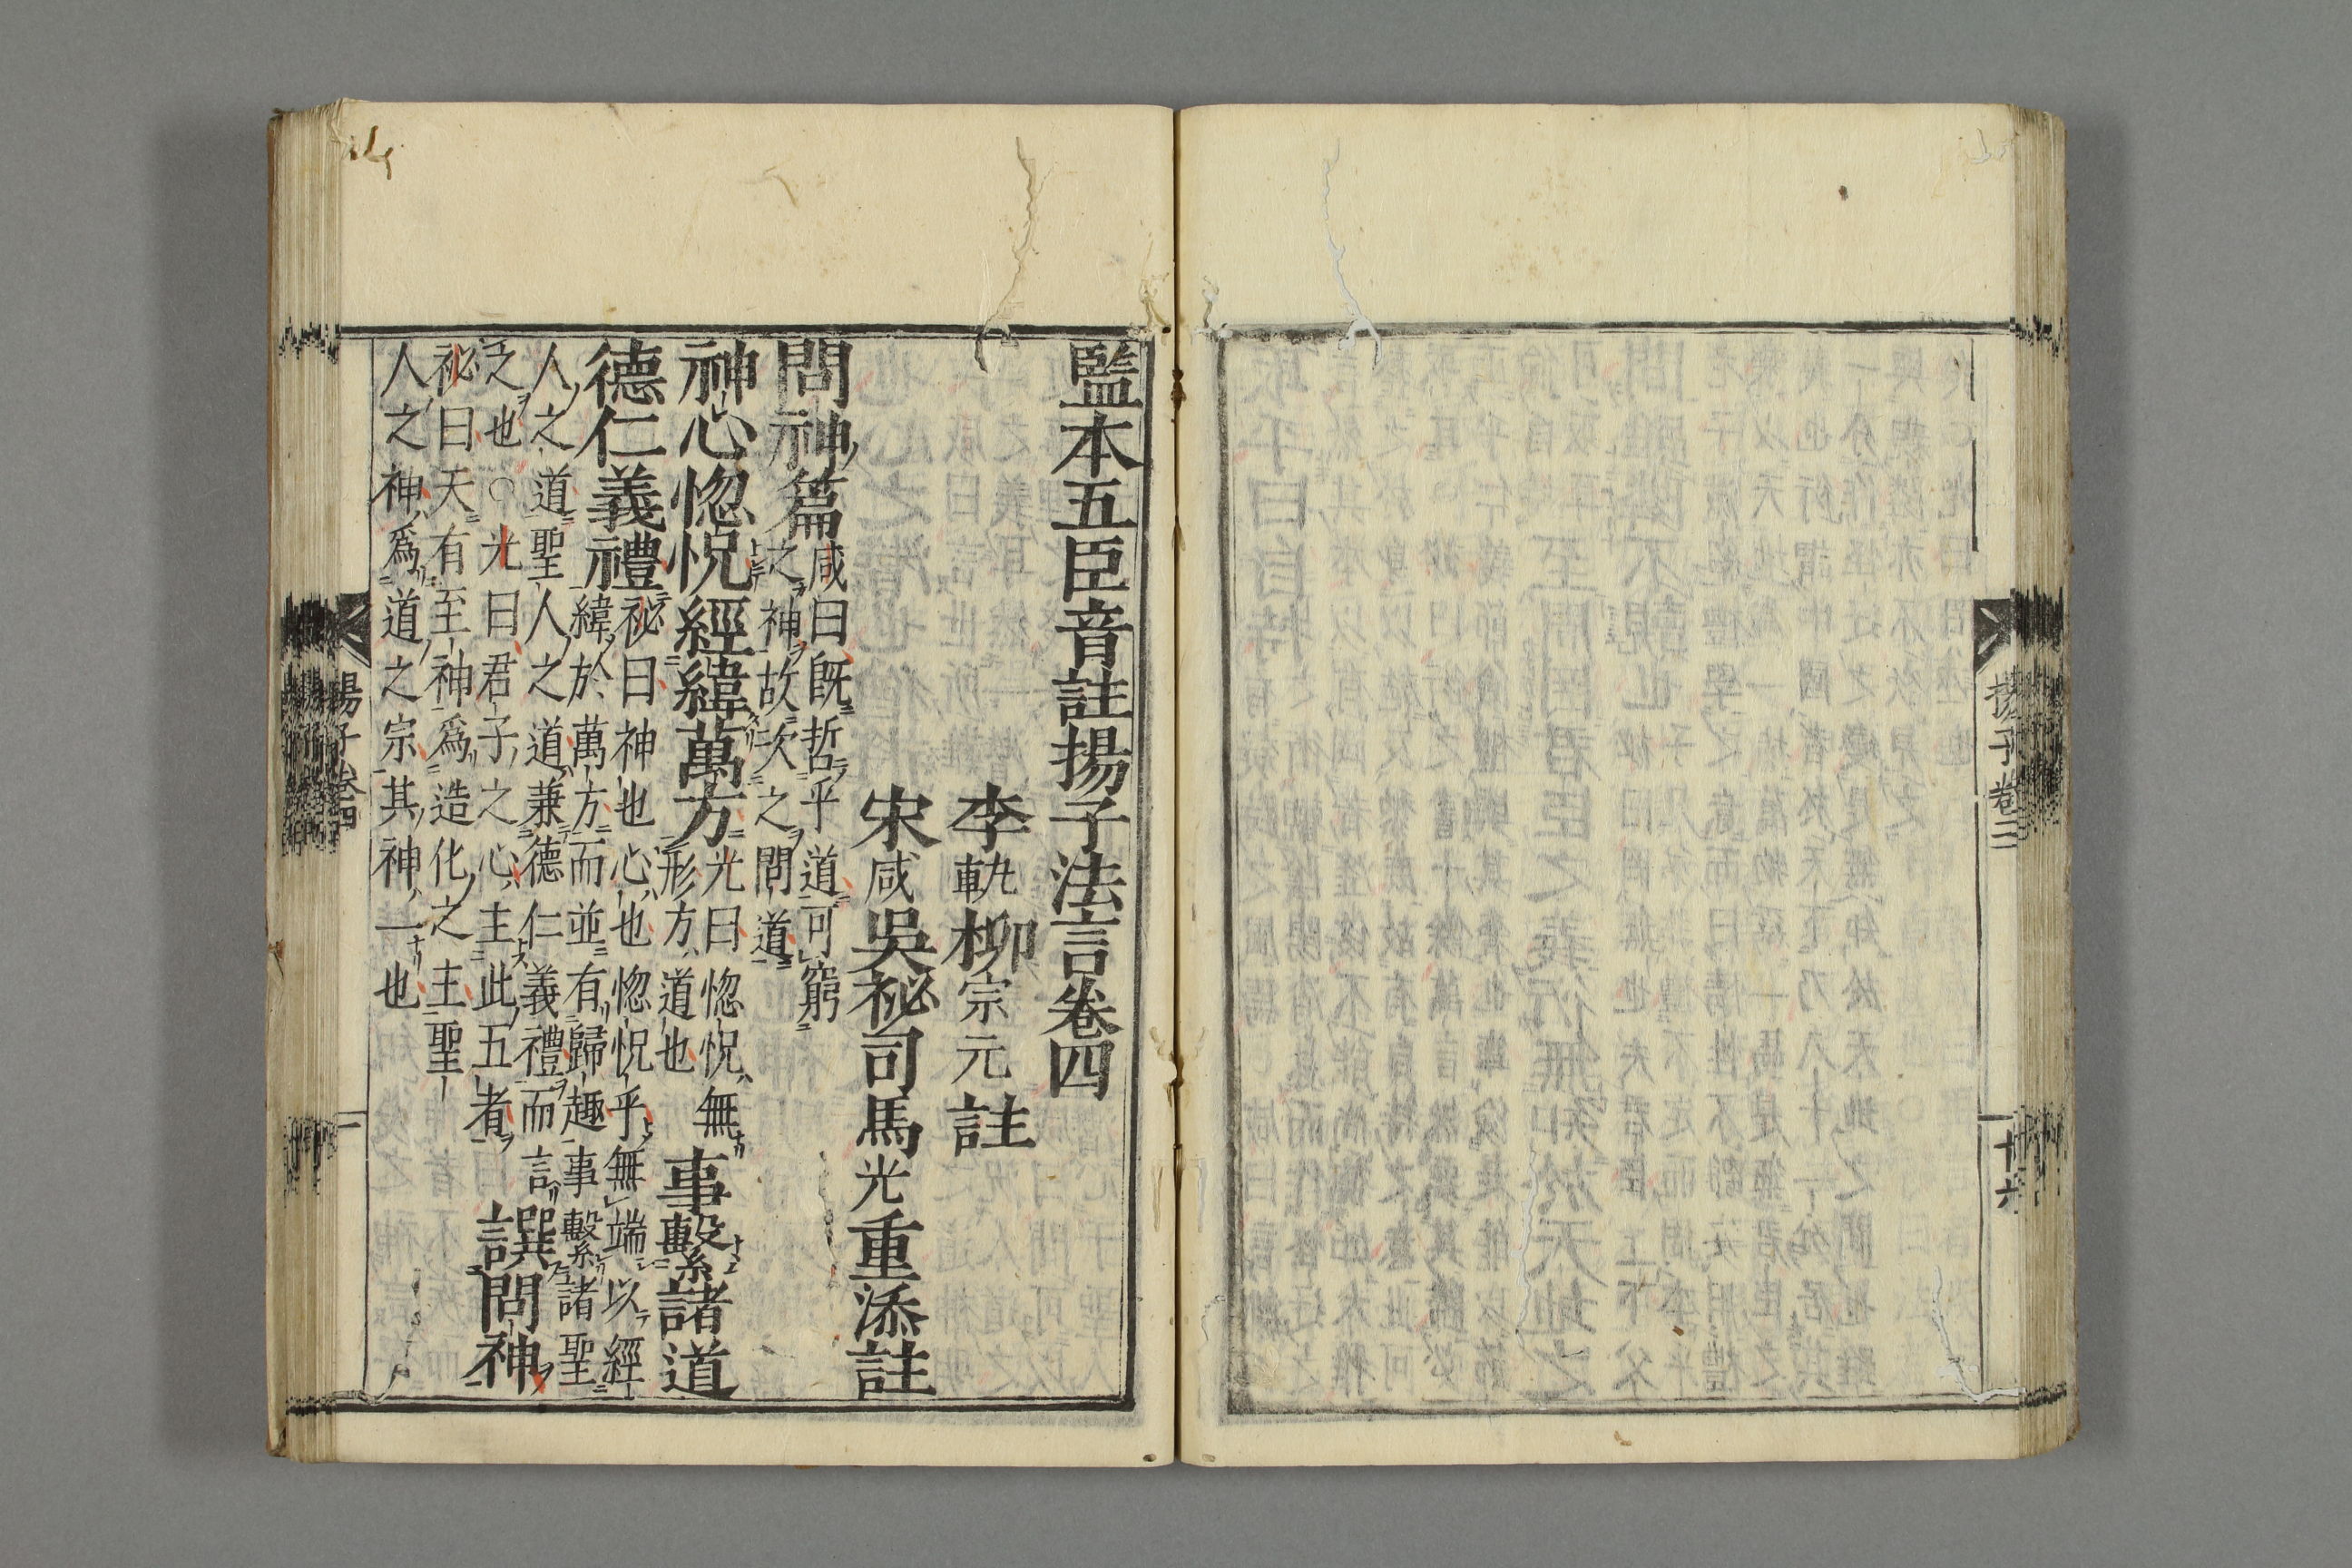 揚子卷三
十六
監本五臣音註揚子法言卷四
李軌柳宗元註
宋咸吳祕司馬光重添註
問神篇
咸曰既哲乎道可窮
之神故次之問道
神心惚怳經緯萬方
光曰惚怳無
形方道也
事繫諸道
德仁義禮
祕曰神也心也惚怳乎無端以經
緯於萬方而並有歸趣事繫諸聖
人之道聖人之道兼德仁義禮而言
之也○光曰君子之心主此五者
譔問神
祕曰天有至神爲造化之主聖
人之神爲道之宗其神一也
揚子卷四
一